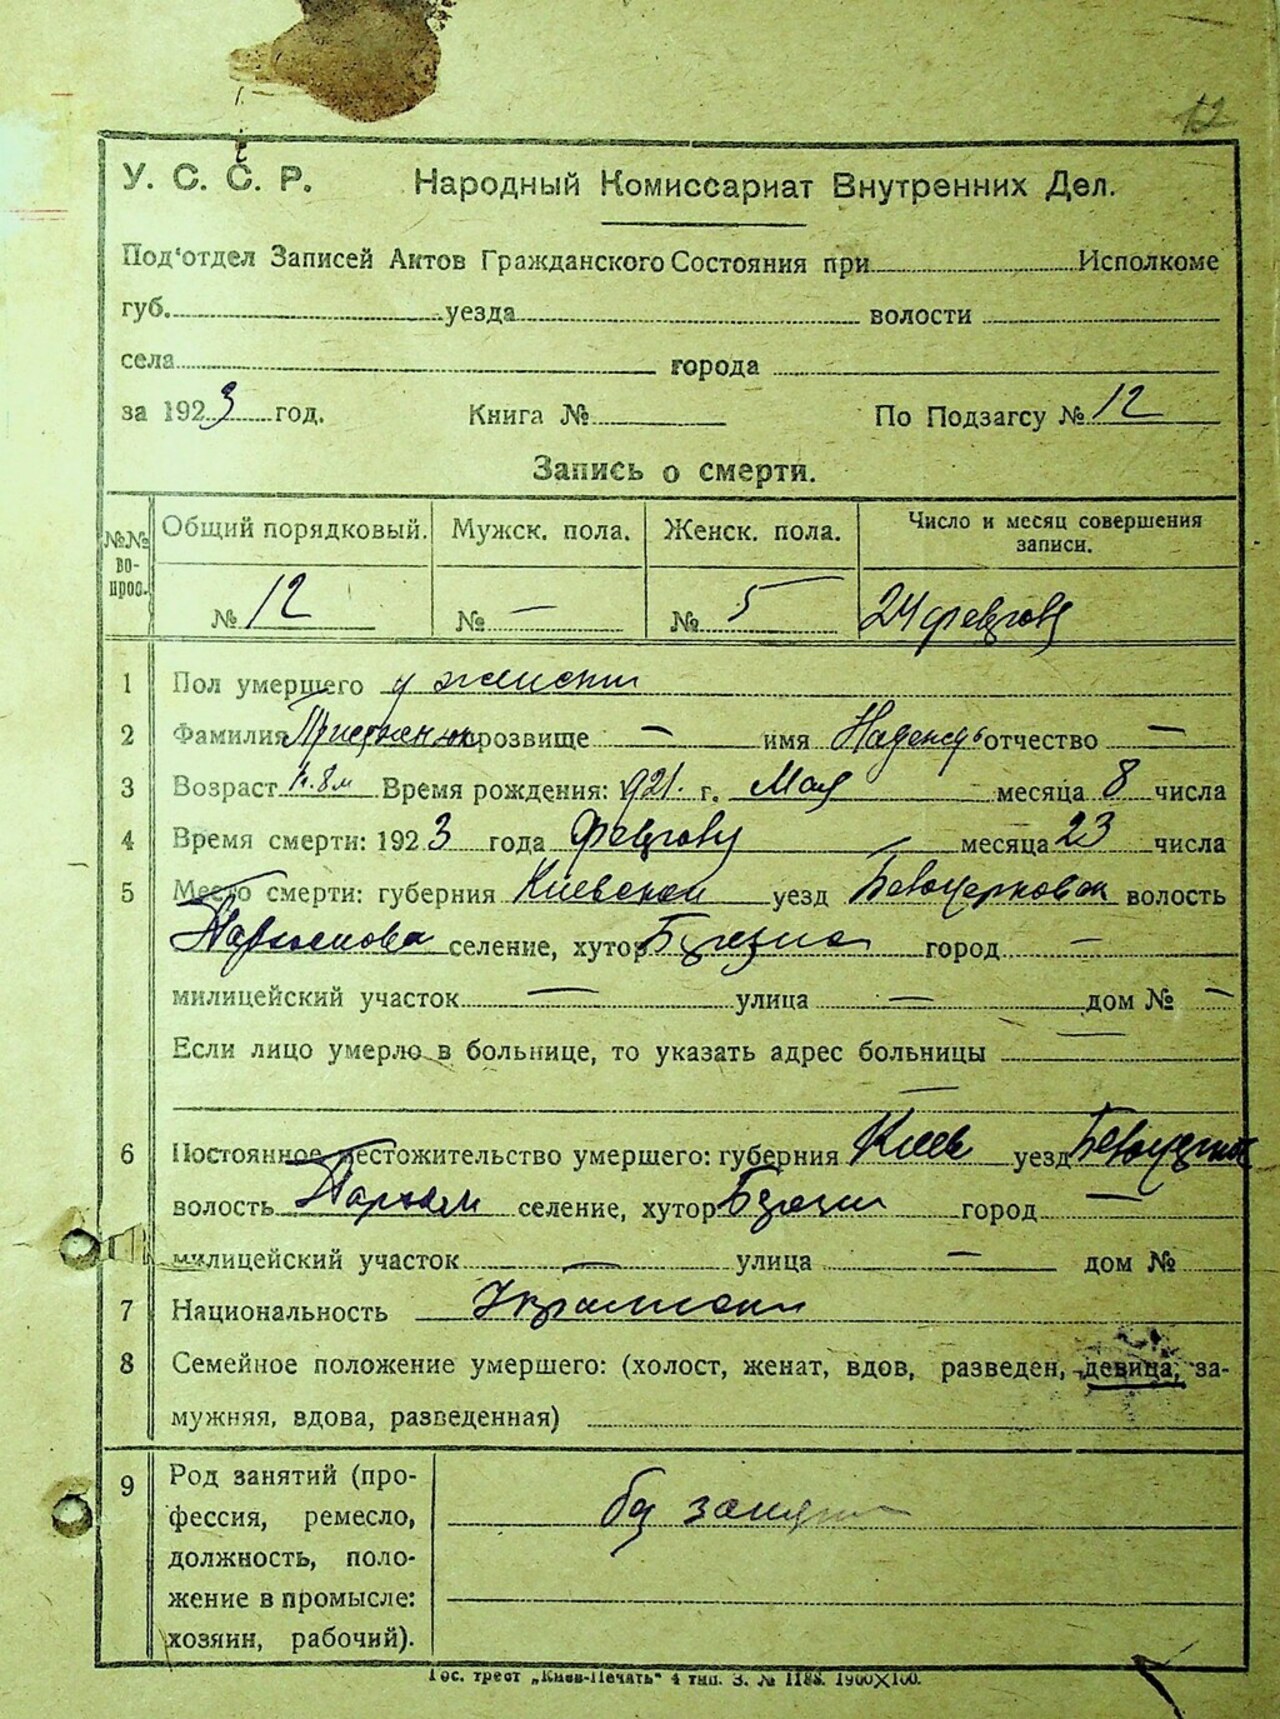 12
У. С. С. Р. Народный Комиссариат Внутренних Дел.
Под‘отдел Записей Актов Гражданского Состояния при Исполкоме
губ. уезда волости
села города
за 1923 год. Книга № По Подзагсу № 12
Запись о смерти.
№№ во- прос. Общий порядковый. Мужск. пола. Женск. пола. Число и месяц совершения записи.
№ 12 № — № 5 24
1 Пол умершего
2 Фамилия прозвище — имя отчество —
3 Возраст 1 г. 8 м Время рождения: 1921. г. Мая месяца 8 числа
4 Время смерти: 1923 года месяца 23 числа
5 Место смерти: губерния Киевской уезд волость
селение, хутор город —
милицейский участок — улица — дом № —
Если лицо умерло в больнице, то указать адрес больницы —
—
6 Постоянное местожительство умершего: губерния Киев уезд
волость селение, хутор город —
милицейский участок — улица — дом №
7 Национальность
8 Семейное положение умершего: (холост, женат, вдов, разведен, девица, за-
мужняя, вдова, разведенная)
9 Род занятий (про-
фессия, ремесло,
должность, поло-
жение в промысле:
хозяин, рабочий).
Гос. трест „Киев-Печать“ 4 тип. З. № 1188. 1900X100.